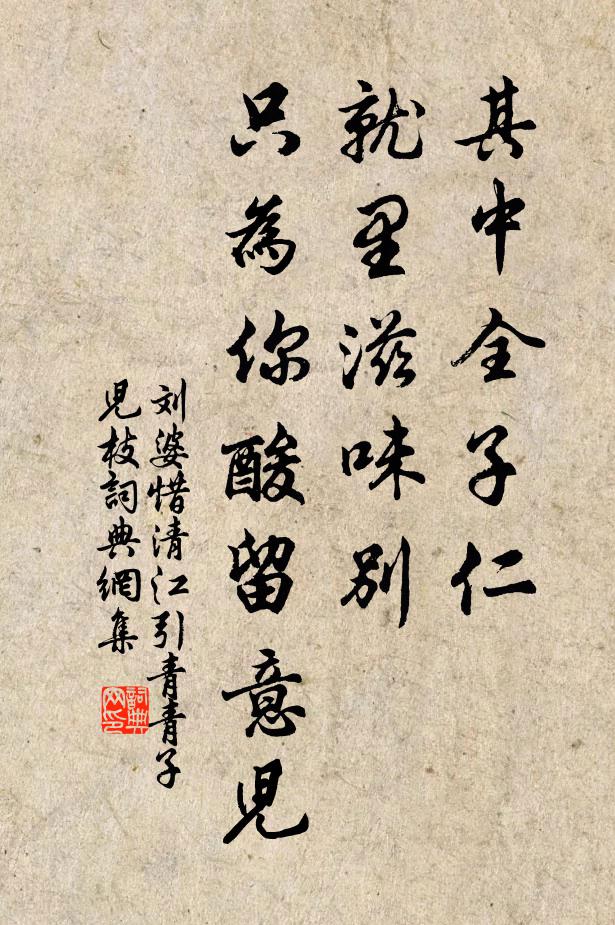 其中全子仁
就里滋味别
只為你酸留意兒
刘婆惜清江引青青子
兒枝詞典網集
詞典
网印